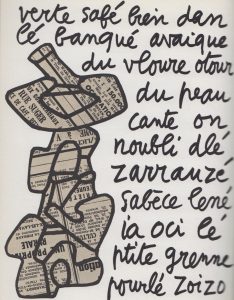 verte safé bien dan
lé banqué avaique
du vloure otour
du peau
cante on
noubli dlé
zarrauzé
sabèce lene
ia oci lé
ptite grenne
pourlé zoizo
RUE SUGER